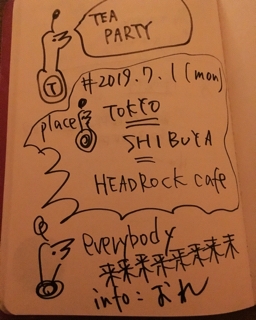 TEA
PARTY
T
#2019.7.1(mon)
place
TOKYO
SHIBUYA
HEADROCK cafe
everybody
info: おれ